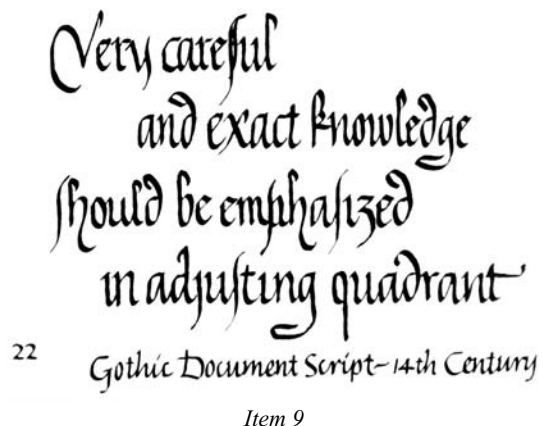 Very careful
and exact knowledge
ſhould be emphaſized
in adjuſting quadrant
22 Gothic Document Script-14th Century
Item 9